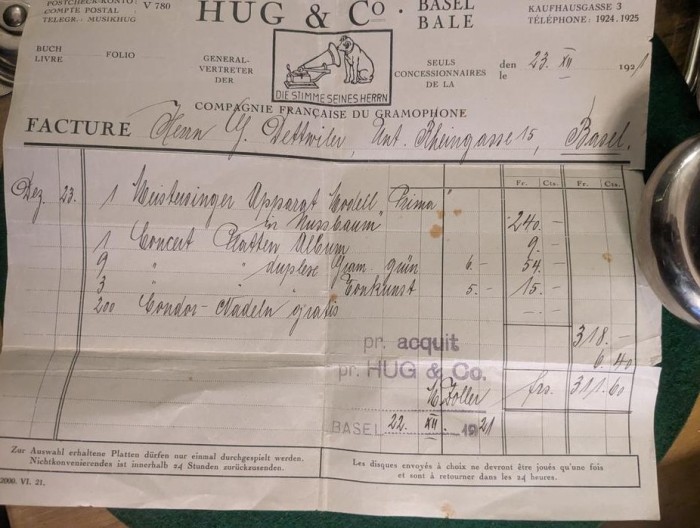 POSTCHECK-KONTO: V 780
COMPTE POSTAL
TELEGR.- MUSIKHUG
HUG & Co.
BASEL
BALE
KAUFHAUSGASSE 3
TÉLÉPHONE: 1924.1925
BUCH
LIVRE
FOLIO
GENERAL-
VERTRETER
DER
DIE STIMME SEINES HERRN
SEULS
CONCESSIONNAIRES
DE LA
den
le
23. XII 1921
COMPAGNIE FRANÇAISE DU GRAMOPHONE
FACTURE Herrn G. Dettwiler, Unt. Rheingasse 15, Basel.
Fr. Cts. Fr. Cts.
Dez. 23. 1 Meistersinger Apparat Modell "Prima"
in Nussbaum 240. -
1 Concert Platten Album 9. -
9 " " duplex Gram. grün 6.- 54. -
3 " " Tonkunst 5.- 15. -
200 Condor-Nadeln gratis -.-
318. -
6. 40
pr. acquit
pr. HUG & Co.
M. Zoller
frs. 311.60
BASEL 22. XII. 1921
Zur Auswahl erhaltene Platten dürfen nur einmal durchgespielt werden.
Nichtkonvenierendes ist innerhalb 24 Stunden zurückzusenden.
Les disques envoyés à choix ne devront être joués qu'une fois
et sont à retourner dans les 24 heures.
2000. VI. 21.